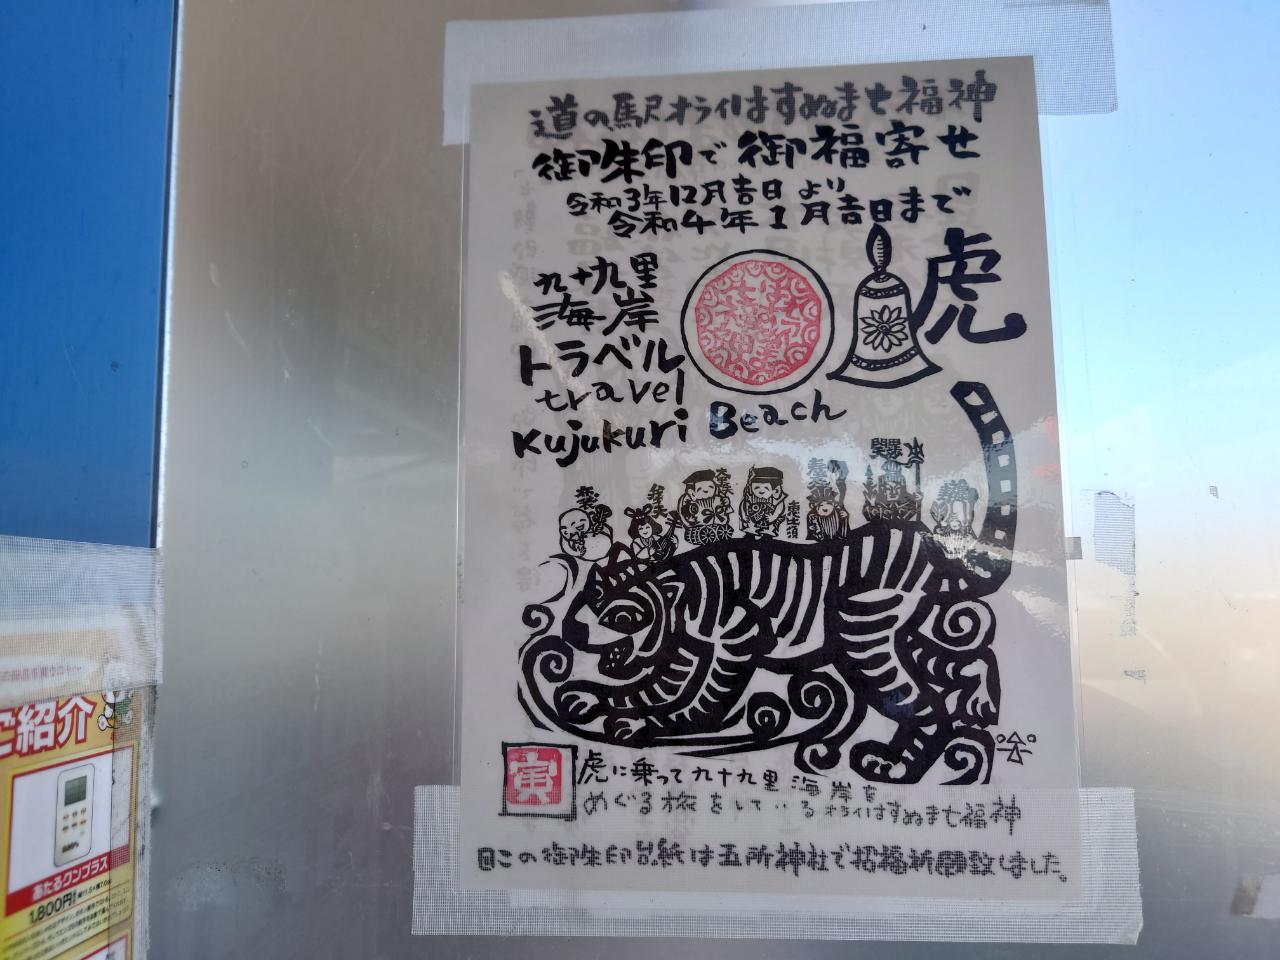 道の駅オライはすぬませ福神
御朱印で御福寄せ
令和3年12月吉日より
令和4年1月吉日まで
九十九里
海岸
トラベル
travel
Kujukuri Beach
虎
大黒天
恵比須
寅
虎に乗って九十九里海岸を
めぐる旅をしているオライはすぬませ福神
この御朱印台紙は五所神社で招福祈願致しました。
ご紹介
あたるクンプラス
1,800円